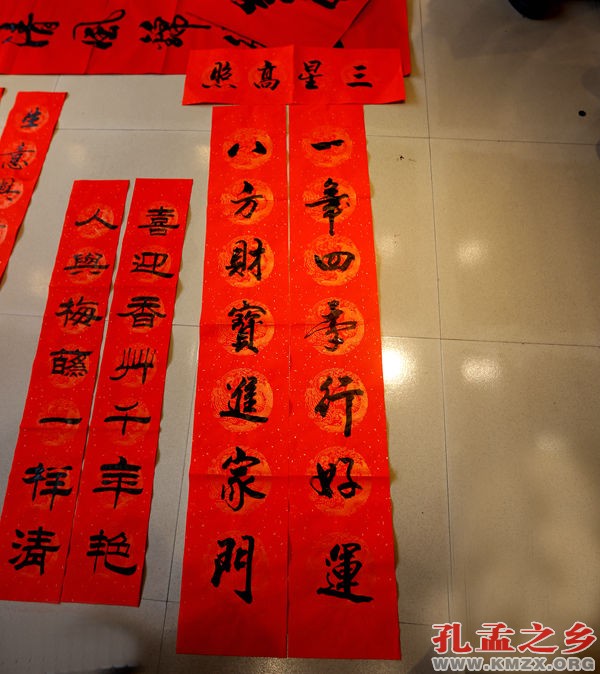 清風
三星高照
一年四季行好運
八方財寶進家門
喜迎香艸千年艳
人與梅蘤一样清
生意興
孔孟之乡
WWW.KMZX.ORG